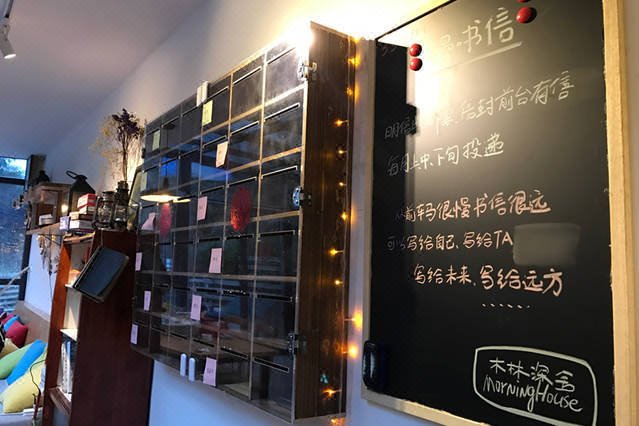 书信
明信 信封前台有信
每月上中、下旬投递
从前车马很慢书信很远
可以写给自己、写给TA
写给未来、写给远方
......
木林深舍
MorningHouse